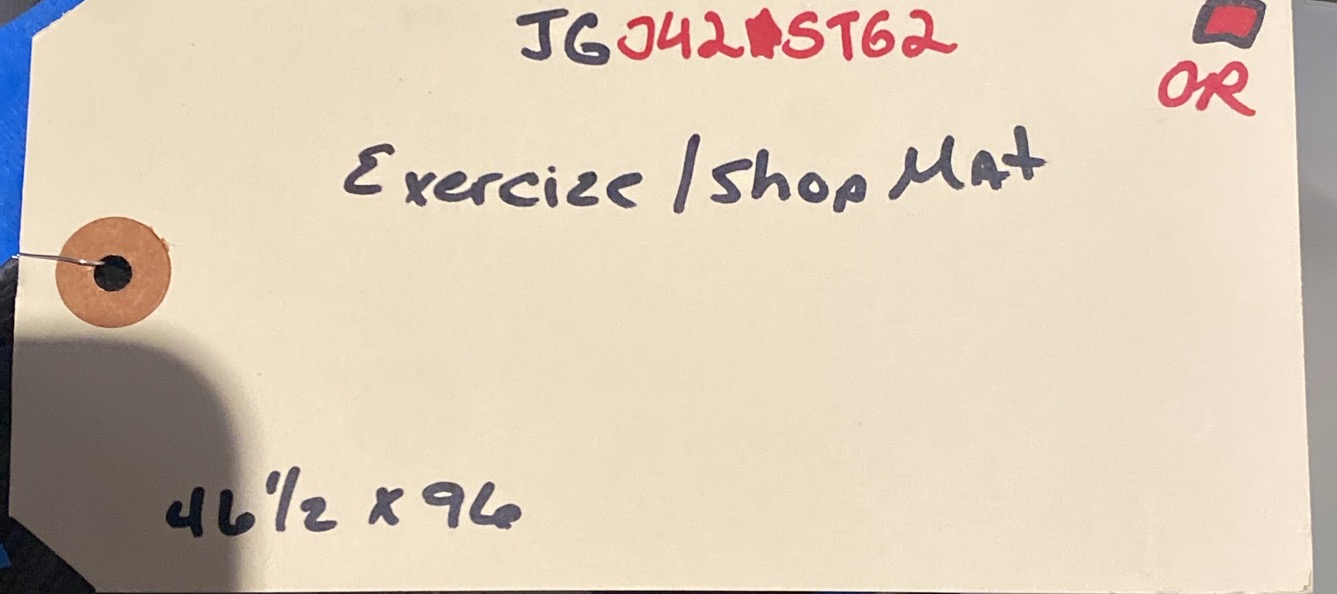 JGJ42 ST62
OR
Exercize / Shop MAt
46 1/2 x 96